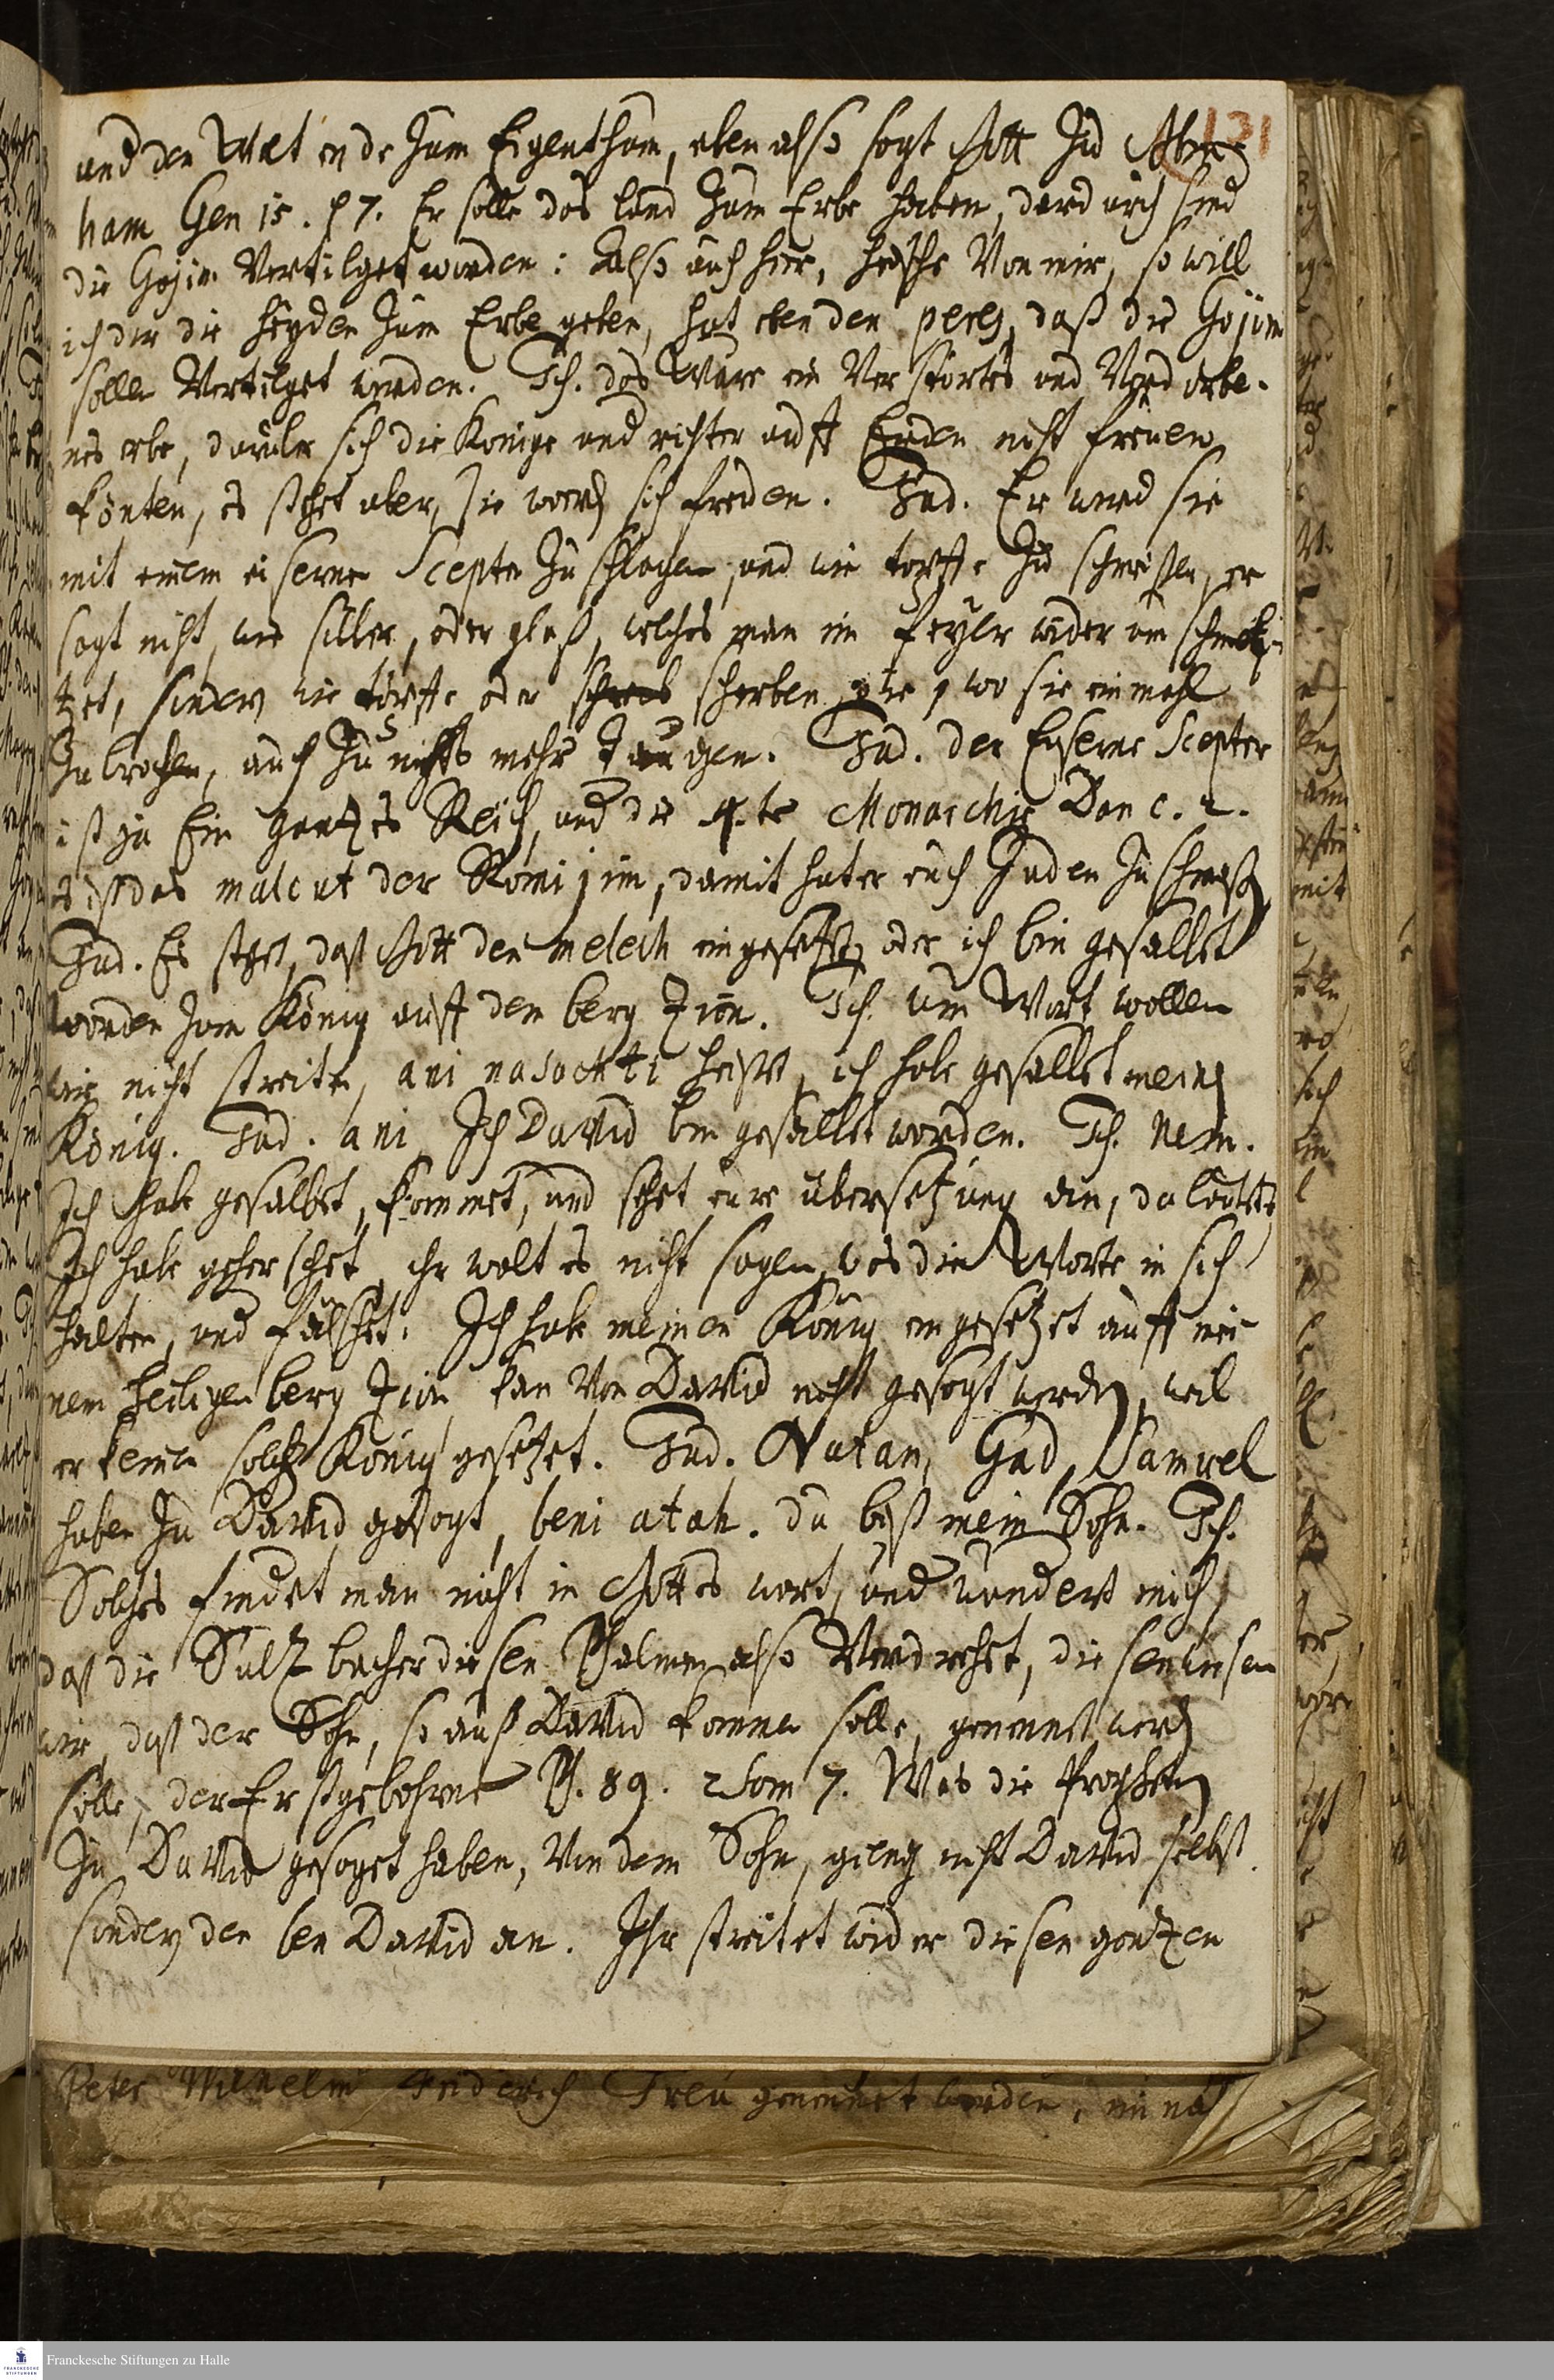 131
und der Welt ende zum Eigenthum, eben also sagt Gott zu Abra-
ham Gen 15. 7. Er solle das land zum Erbe haben, dardurch sind
die Gojim Vertilget worden: Also auch hier, heische Von mir, so will
ich dir die Heyden zum Erbe geben, hat eben den , daß die Gojim
sollen Vertilget werden. Ich. das Wäre ein Verstörtes und Verdorbe-
nes erbe, darüber sich die Könige und richter auff Erden nicht freuen
könten, es stehet aber, sie werden sich freuen. Jud. Er wird sie
mit einem eisernen Scepter zuschlagen, und wie töpffe zu schmeißen, er
sagt nicht, wie silber, oder glaß, welches man im feyer wider um schmel-
tzet, sondern wie töpffe oder scherben, die, wo sie ein mahl
zubrochen, auch zu nichts mehr taugen. Jud. der Eyserne Scepter
ist ja Ein gantzes Reich, und die 4.te Monarchie Dan c. 2.
es ist das malcut der Romijim, damit hat er euch Juden zuschmeißen
Jud. Es stehet, daß Gott den melech eingesetzt, oder ich bin gesalbet
worden zum König auff dem berg Zion. Ich. um Wort wollen
wir nicht streiten, ani nasachti heist, ich habe gesalbet meinen
König. Jud. ani Ich David bin gesalbet worden. Ich. Nein.
Ich habe gesalbet, kommet, und sehet eure übersetzung an, da lautets
Ich habe geherschet, ihr wolt es nicht sagen, was die Worte in sich
halten, und fälschet. Ich habe meinen König eingesetzet auff mei-
nem heiligen berg Zion kan Von David nicht gesagt werden, weil
er keinen solchen König gesetzet. Jud. Natan, Gad, Samuel
haben zu David gesagt, beni atah. du bist mein Sohn. Ich.
Solches findet man nicht in Gottes wort, und wundert mich,
daß die Sultzbacher diesen Psalmen also Verdrehet, diesen wissen
wir, daß der Sohn, so auß David kommen solle, genennet werden
solle, der Erstgebohrne Ps. 89. 2 Sam 7. Was die Propheten
zu David gesaget haben, Von dem Sohn, gieng nicht David selbst
sondern den ben David an. Ihr streitet wider diesen gantzen
Peter Wilhelm Friderich Treu genennet worden,
Franckesche Stiftungen zu Halle